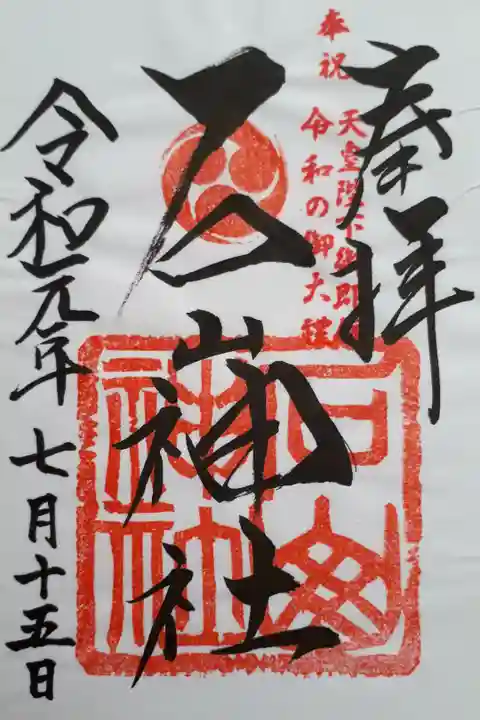 奉拝
奉祝 天皇陛下御即
令和の御大礼
石山神社
令和元年七月十五日